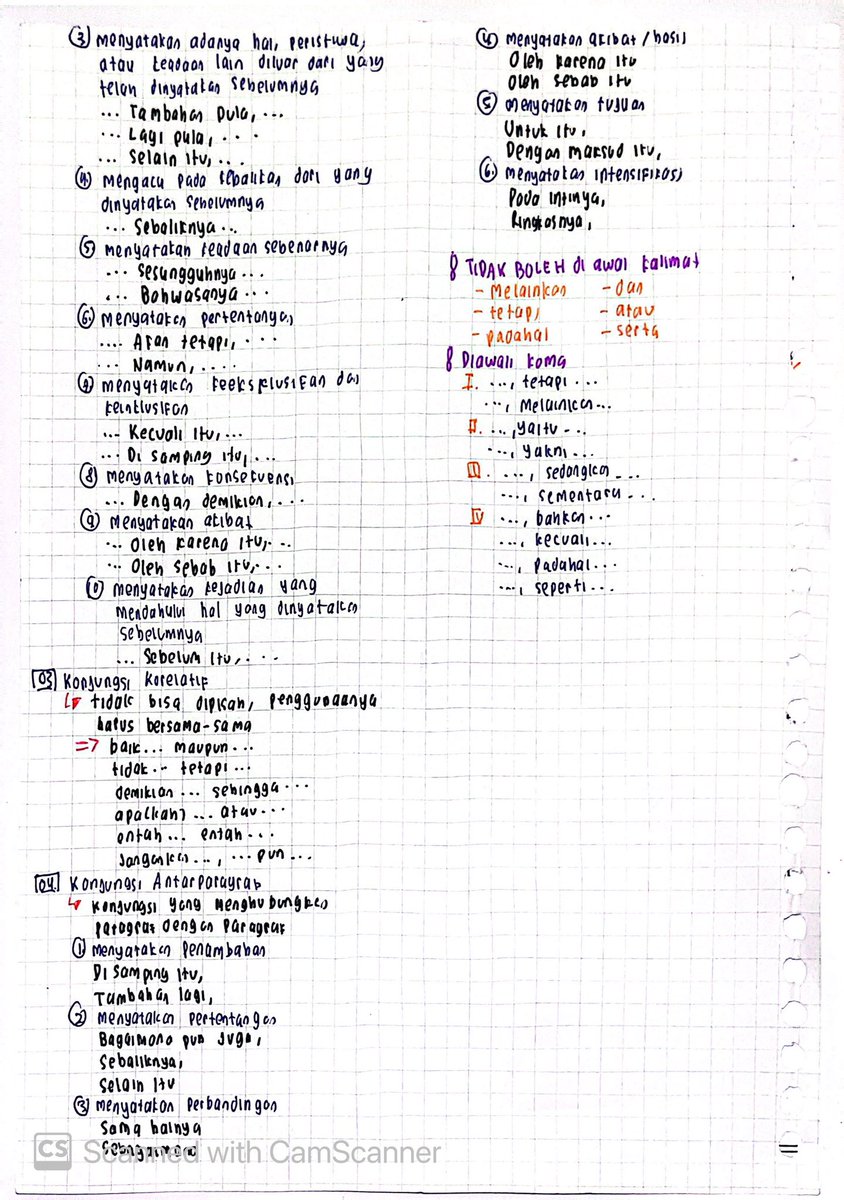 ③ menyatakan adanya hal, peristiwa,
atau keadaan lain diluar dari yang
telah dinyatakan sebelumnya
... Tambahan pula, ...
... Lagi pula, ...
... Selain itu, ...
④ mengacu pada kebalikan dari yang
dinyatakan sebelumnya
... Sebaliknya ...
⑤ menyatakan keadaan sebenarnya
... Sesungguhnya ...
... Bahwasanya ...
⑥ menyatakan pertentangan
... Akan tetapi, ...
... Namun, ...
⑦ menyatakan keeksklusifan dan
keinklusifan
... Kecuali itu, ...
... Di samping itu, ...
⑧ menyatakan konsekuensi
... Dengan demikian, ...
⑨ menyatakan akibat
... Oleh karena itu, ...
... Oleh sebab itu, ...
⑩ menyatakan kejadian yang
mendahului hal yang dinyatakan
sebelumnya
... Sebelum itu, ...
03 Konjungsi Korelatif
↳ tidak bisa dipisah, penggunaannya
harus bersama-sama
=> baik ... maupun ...
tidak ... tetapi ...
demikian ... sehingga ...
apa(kah) ... atau ...
entah ... entah ...
Jangankan ..., ... pun ...
04. Konjungsi Antarparagraf
↳ konjungsi yang menghubungkan
paragraf dengan paragraf
① menyatakan penambahan
Di samping itu,
Tambahan lagi,
② menyatakan pertentangan
Bagaimana pun juga,
Sebaliknya,
Selain itu
③ menyatakan perbandingan
Sama halnya
Sebagaimana
④ menyatakan akibat / hasil
Oleh karena itu
Oleh sebab itu
⑤ menyatakan tujuan
Untuk itu,
Dengan maksud itu,
⑥ menyatakan intensifikasi
Pada intinya,
Ringkasnya,
TIDAK BOLEH di awal kalimat
- Melainkan - dan
- tetapi - atau
- padahal - serta
Diawali koma
I. ..., tetapi ...
..., Melainkan ...
II. ..., yaitu ...
..., yakni ...
III. ..., sedangkan ...
..., sementara ...
IV ..., bahkan ...
..., kecuali ...
..., padahal ...
..., seperti ...
CS Scanned with CamScanner